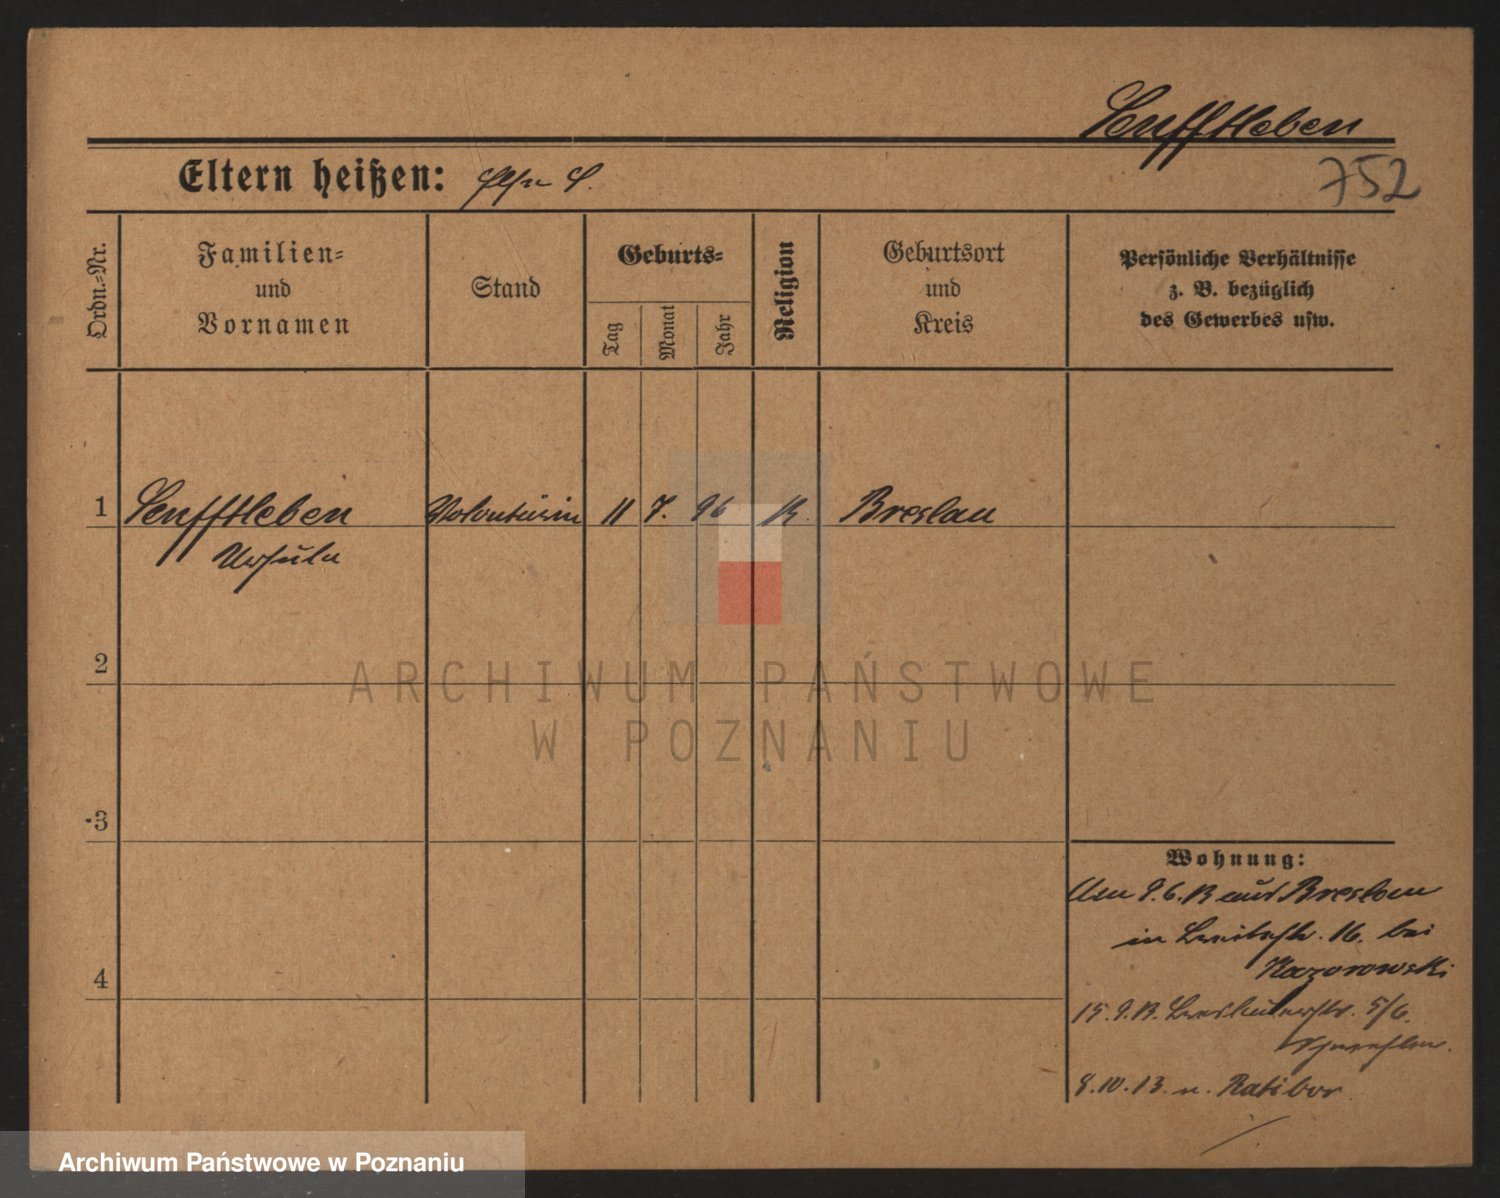 Senfftleben
752
Eltern heißen:
Ordn.-Nr.
Familien-
und
Vornamen
Stand
Geburts-
Tag
Monat
Jahr
Religion
Geburtsort
und
Kreis
Persönliche Verhältnisse
z. B. bezüglich
des Gewerbes usw.
1 Senfftleben Volontärin 11 7. 96 K. Breslau
Ursula
2
3
4
Wohnung:
Am 9.6.13 aus Breslau
in 16. bei
Kazorowski
15.9.13. 5/6.
8.10.13. n. Ratibor
ARCHIWUM PAŃSTWOWE
W POZNANIU
Archiwum Państwowe w Poznaniu